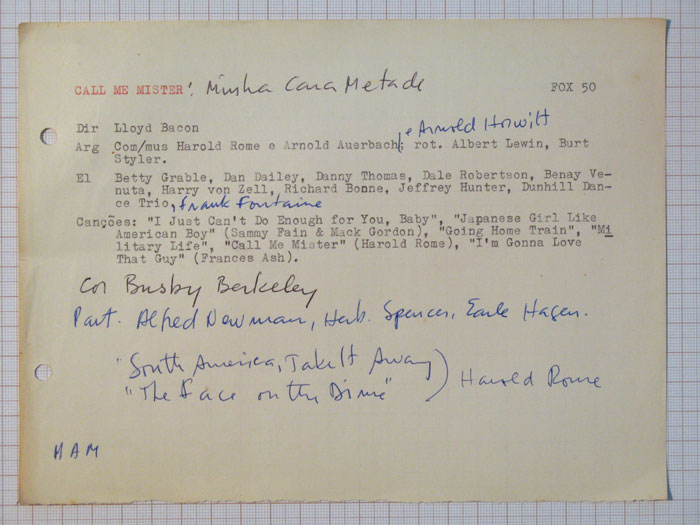 CALL ME MISTER! Minha Cara Metade FOX 50
e Arnold Horwitt
Dir Lloyd Bacon
Arg Com/mus Harold Rome e Arnold Auerbach; rot. Albert Lewin, Burt
Styler.
El Betty Grable, Dan Dailey, Danny Thomas, Dale Robertson, Benay Ve-
nuta, Harry von Zell, Richard Bonne, Jeffrey Hunter, Dunhill Dan-
ce Trio, Frank Fontaine
Canções: "I Just Can't Do Enough for You, Baby", "Japanese Girl Like
American Boy" (Sammy Fain & Mack Gordon), "Going Home Train", "Mi
litary Life", "Call Me Mister" (Harold Rome), "I'm Gonna Love
That Guy" (Frances Ash).
Cor Busby Berkeley
Part. Alfred Newman, Herb. Spencer, Earle Hagen.
"South America, Take It Away
"The Face on the Dime" ) Harold Rome
HAM